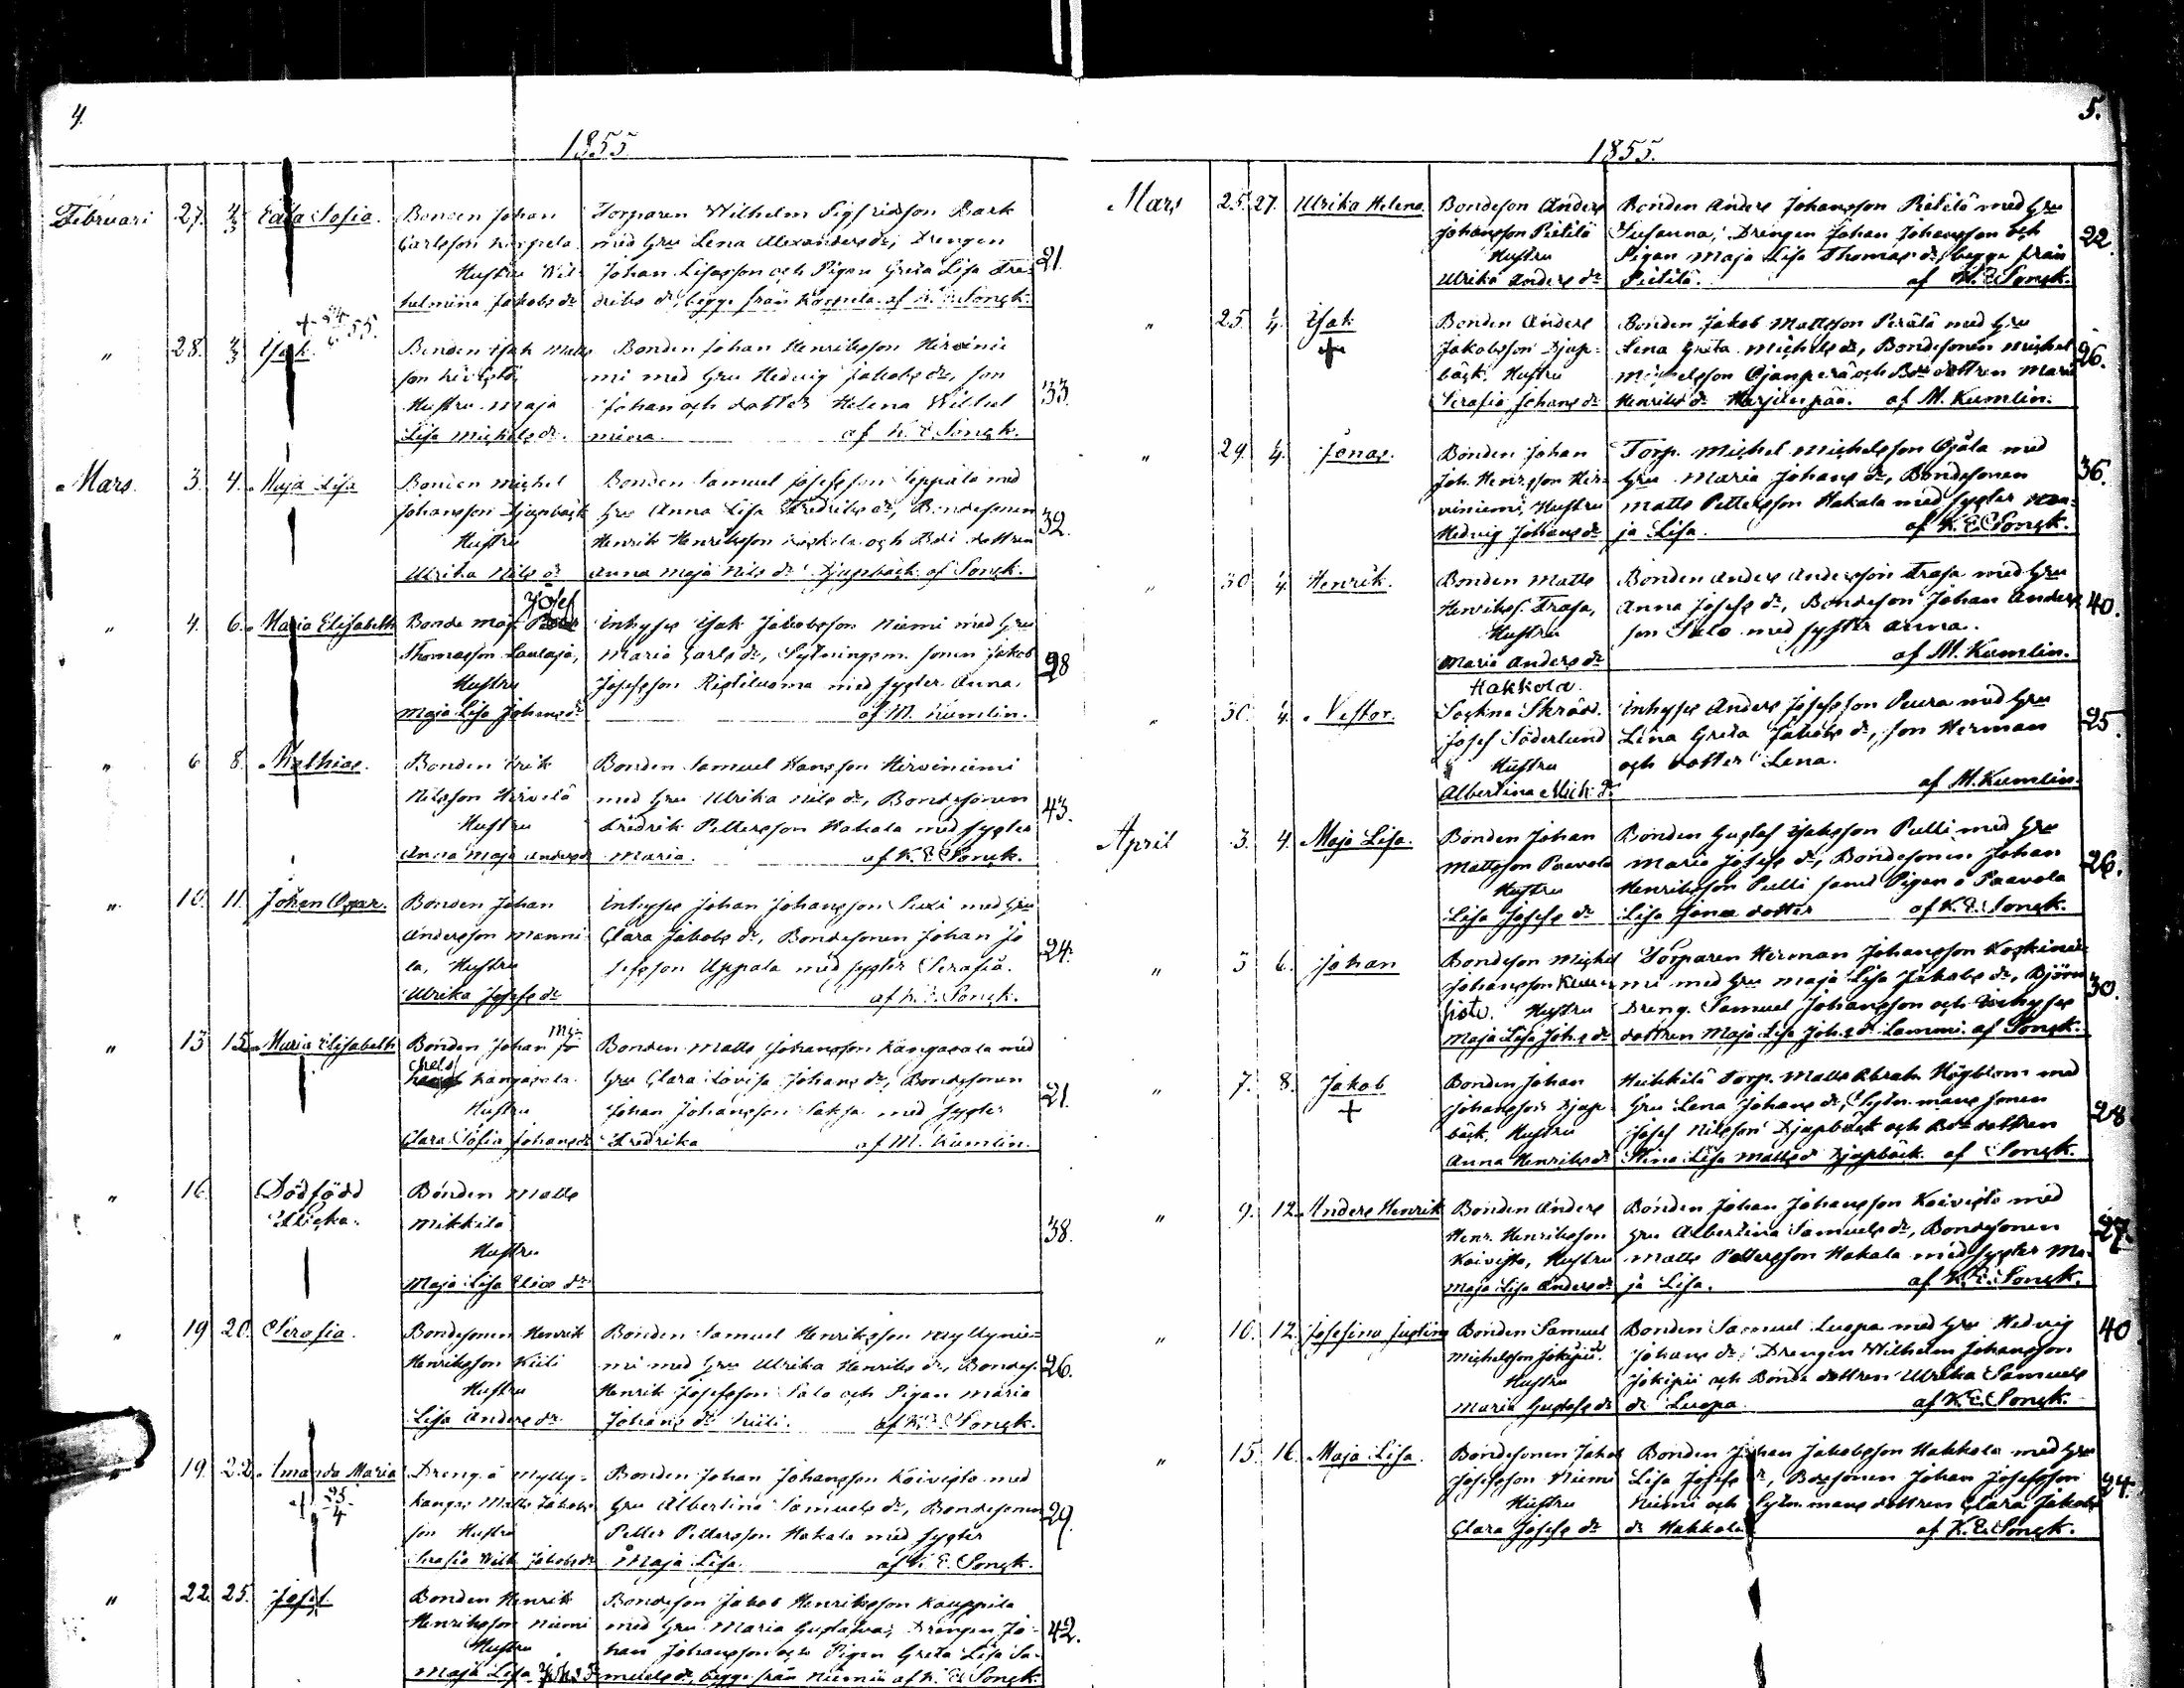 4.
1855
Februari 27. 4/3 Edla Sofia. Bonden Johan Torparen Wilhelm Sigfridsson Bark
Carlsson Korpela. med hru Lena Alexandersdr, Drengen
Hustru Wil- Johan Lisasson och Pigan Greta Lisa Fre- 21.
helmina Jakobs dr driks dr, begge från Korpela. af K. E. Sonck.
" 28. 4/3 Isak. + 55. Bonden Isak Matts Bonden Johan Henriksson Hirvinie
son mi med hru Hedvig Jakobs dr, son 33.
Hustru Maja Johan och dotter Helena Wilhel
Lisa Michels dr. mina. af K. E. Sonck.
Mars. 3. 4. Maja Lisa Bonden Michel Bonden Samuel Josefsson Seppälä med
Johansson Djupbäck hru Anna Lisa Fredriks dr, Bondesonen 32.
Hustru Henrik Henriksson och Bde dottren
Ulrika Nils dr Anna Maja Nils dr Djupbäck. af Sonck.
" 4. 6. Maria Elisabeth Bonde måg Josef Inhyses Isak Jakobsson Niemi med hru
Thomasson Laulaja, Maria Carls dr, Sytningsm. sonen Jakob 28
Hustru Josefsson Ristiluoma med syster Anna.
Maja Lisa Johans dr af M. Kumlin.
" 6 8. Mathias. Bonden Erik Bonden Samuel Hansson Hirviniemi
Nilsson Hirvelä med hru Ulrika Nils dr, Bondesonen 43.
Hustru Fredrik Pettersson Hakala med syster
Anna Maja Anders dr Maria. af K. E. Sonck.
" 10. 11. Johan Oscar. Bonden Johan Inhyses Johan Johansson Susi med hru
Andersson Manni- Clara Jakobs dr, Bondesonen Johan Jo 24.
la, Hustru sefsson Uppala med syster Serafia.
Ulrika Josefs dr af K. E. Sonck.
" 13 15. Maria Elisabeth Bonden Johan Mi- Bonden Matts Johansson Kangasala med
chels Kangasala. hru Clara Lovisa Johans dr, Bondesonen 21.
Hustru Johan Johansson Saksa med syster
Clara Sofia Johans dr Fredrika af M. Kumlin.
" 16. Dödfödd Bonden Matts
Flicka. Mikkilä 38.
Hustru
Maja Lisa Elias dr
" 19 20. Serafia. Bondesonen Henrik Bonden Samuel Henriksson Myllynie-
Henriksson Kiili mi med hru Ulrika Henriks dr, Bondes. 26.
Hustru Henrik Josefsson Salo och Pigan Maria
Lisa Anders dr. Johans dr Kiili. af K. E. Sonck.
" 19. 22. Amanda Maria Dreng å Mylly- Bonden Johan Johansson Koivisto med
+ 25/4 kangas Matts Jakobs hru Albertina Samuels dr, Bondesonen 29.
son Hustru Petter Pettersson Hakala med syster
Serafia Wilh. Jakobs dr Maja Lisa. af K. E. Sonck.
" 22. 25. Josef. Bonden Henrik Bondeson Jakob Henriksson Kauppila
Henriksson Niemi med hru Maria Gustafva, Drengen Jo- 42.
Hustru han Johansson och Pigan Greta Lisa Sa-
Maja Lisa Johs dr muels dr, begge från Niemi af K. E. Sonck.
5.
1855.
Mars 25. 27. Ulrika Helena. Bondeson Anders Bonden Anders Johansson Pietilä med hru
Johansson Pietilä Susanna, Drengen Johan Johansson och 22.
Hustru Pigan Maja Lisa Thomas dr, begge från
Ulrika Anders dr Pietilä. af K. E. Sonck.
" 25. 1/4 Isak Bonden Anders Bonden Jakob Mattsson Perälä med hru
+ Jakobsson Djup- Lena Greta Michels dr, Bondesonen Michel 26.
bäck, Hustru Michelsson Ojanperä och Bde dottren Maria
Serafia Johans dr Henriks dr Harjunpää. af M. Kumlin.
" 29. 1/4 Jonas. Bonden Johan Torp. Michel Michelsson Ojala med
Joh. Henrsson Hir- hru Maria Johans dr, Bondesonen 36.
viniemi, Hustru Matts Pettersson Hakala med syster Ma-
Hedvig Johans dr ja Lisa. af K. E. Sonck.
" 30 1/4 Henrik. Bonden Matts Bonden Anders Andersson Frasa med hru
Henrikss. Frasa, Anna Josefs dr, Bondeson Johan Anders 40.
Hustru son Salo med syster Anna.
Maria Anders dr af M. Kumlin.
Hakkola.
" 30. 1/4 Nestor. Sockne Skräd. Inhyses Anders Josefsson Peura med hru
Josef Söderlund Lena Greta Jakobs dr, son Herman 25.
Hustru och dotter Lena.
Albertina Mich. dr af M. Kumlin.
April 3. 4. Maja Lisa. Bonden Johan Bonden Gustaf Isaksson Pulli med hru
Mattsson Paavola Maria Josefs dr, Bondesonen Johan 26.
Hustru Henriksson Pulli samt Pigan å Paavola
Lisa Josefs dr Lisa Jonas dotter af K. E. Sonck.
" 5 6. Johan Bondeson Michel Torparen Herman Johansson Koskinie
Johansson mi med hru Maja Lisa Jakobs dr, Björn 30.
Hustru Dreng. Samuel Johansson och Inhyses
Maja Lisa Johs dr dottren Maja Lisa Johs dr Lammi. af Sonck.
" 7. 8. Jakob Bonden Johan Heikkilä Torp. Matts Abrah. Högblom med
+ Johansson Djup- hru Lena Johans dr, Sytn. mans sonen 28
bäck, Hustru Josef Nilsson Djupbäck och Bde dottren
Anna Henriks dr Stina Lisa Matts dr Djupbäck. af Sonck.
" 9. 12. Anders Henrik Bonden Anders Bonden Johan Johansson Koivisto med
Henr. Henriksson hru Albertina Samuels dr, Bondesonen 27.
Koivisto, Hustru Matts Pettersson Hakala med syster Ma-
Maja Lisa Anders dr ja Lisa. af K. E. Sonck.
" 10. 12. Josefina Justina Bonden Samuel Bonden Samuel Luopa med hru Hedvig 40
Michelsson Jokipii. Johans dr, Drengen Wilhelm Johansson
Hustru Jokipii och Bonde dottren Ulrika Samuels
Maria Gustafs dr dr Luopa. af K. E. Sonck.
" 15. 16. Maja Lisa. Bondesonen Jakob Bonden Johan Jakobsson Hakkola med hru
Josefsson Niemi Lisa Josefs dr, Bdesonen Johan Josefsson 24.
Hustru Niemi och Sytn. mans dottren Clara Jakobs
Clara Josefs dr dr Hakkola af K. E. Sonck.